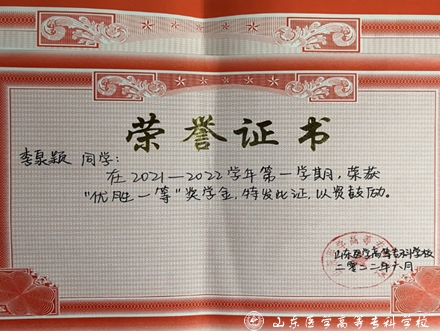 荣誉证书
李泉颖 同学:
在2021—2022学年第一学期,荣获
"优胜一等"奖学金,特发此证,以资鼓励。
山东医学高等专科学校
二零二二年六月
山东医学高等专科学校